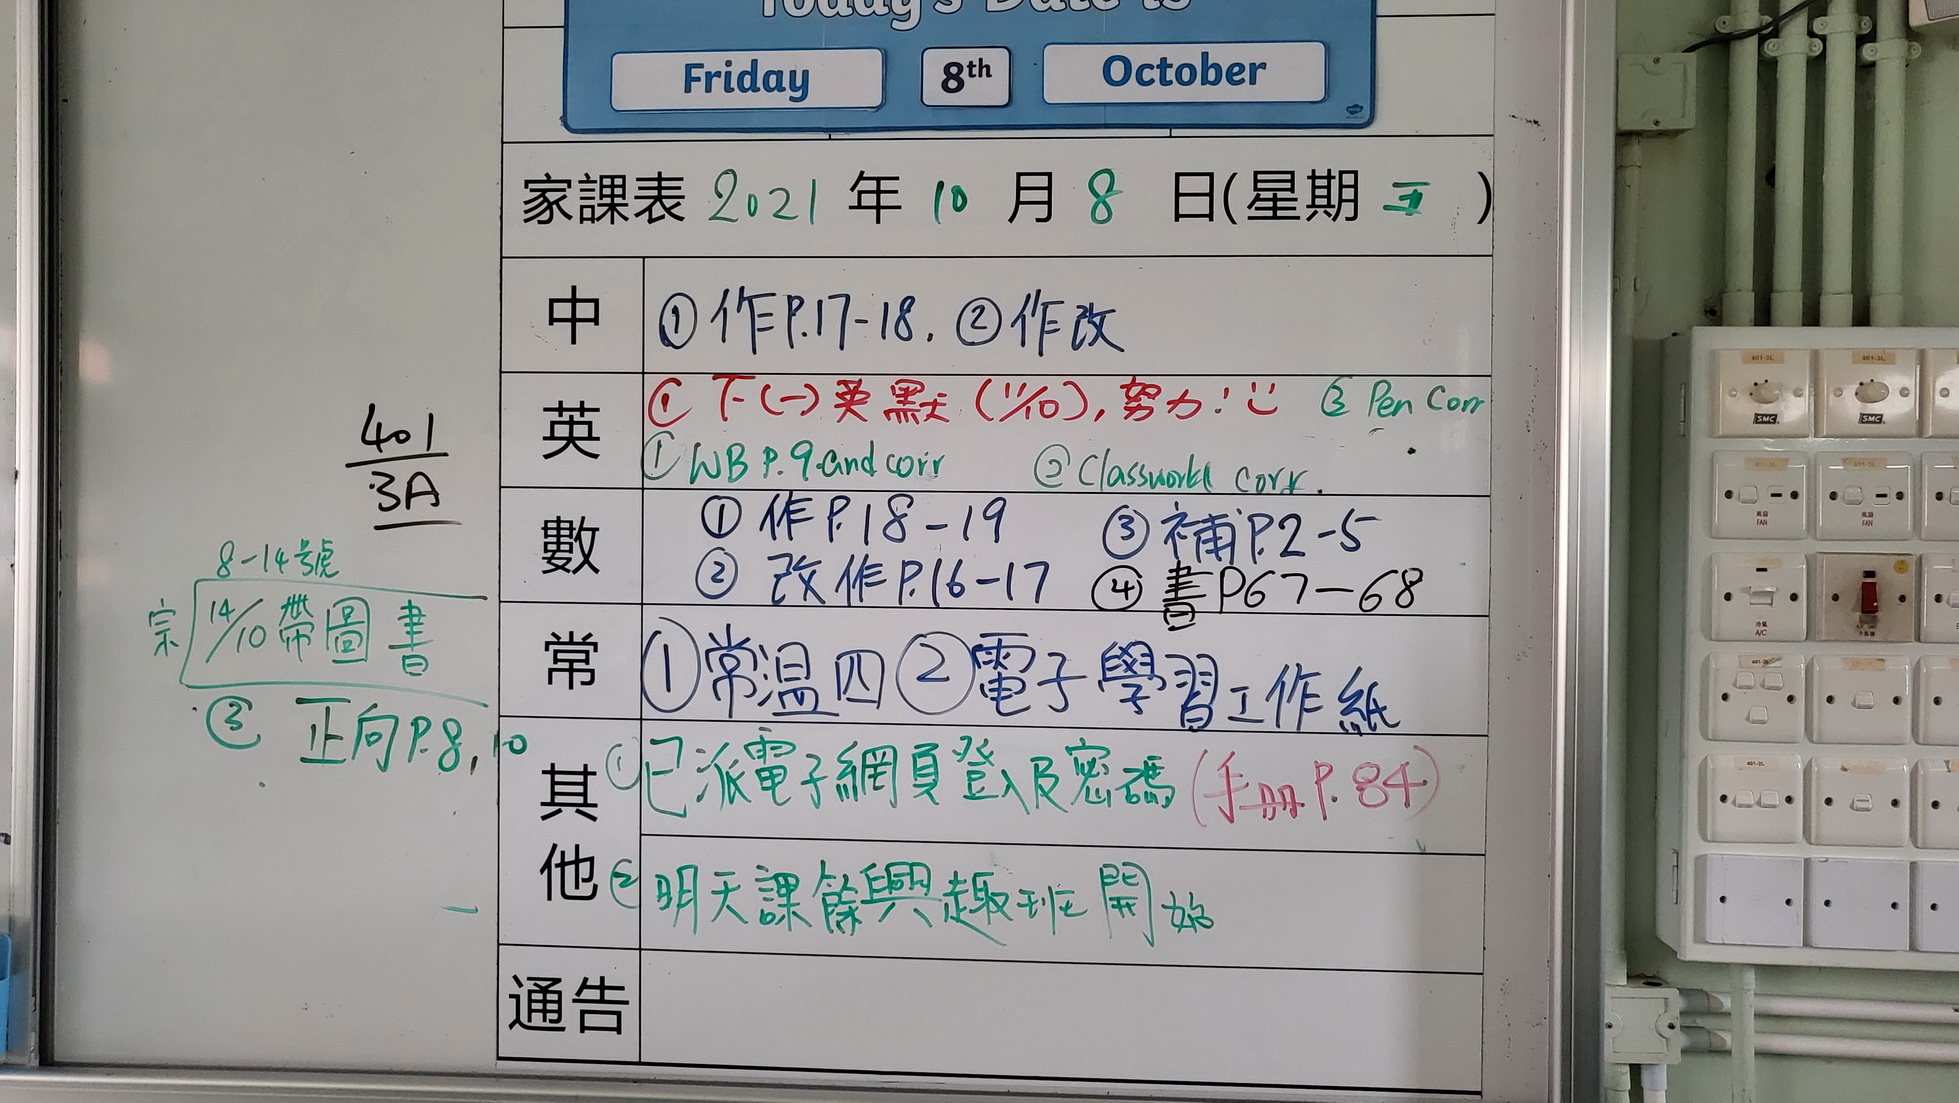 Today's Date is
Friday 8th October
家課表 2021 年 10 月 8 日(星期 五 )
中 ①作P.17-18. ②作改
英 ① 下(一)英默(11/10),努力!
③ Pen Corr
① WB P.9 and corr ② Classwork corr.
數 ① 作P.18-19 ③ 補P.2-5
② 改作P.16-17 ④ 書P67-68
常 ①常温四 ②電子學習工作紙
其他
① 已派電子網頁登入及密碼(手冊P.84)
② 明天課餘興趣班開始
通告
401
3A
8-14號
宗 14/10 帶圖書
③ 正向P.8, 10
SMC
SMC
風扇
FAN
風扇
FAN
冷氣
A/C